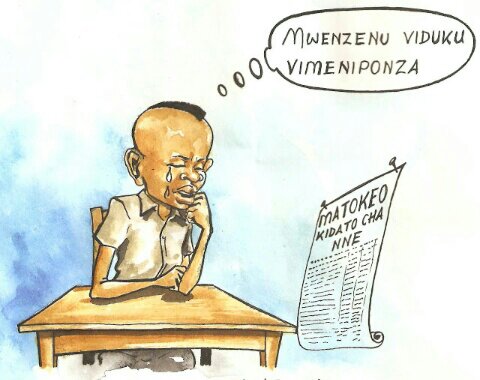 MWENZENU VIDUKU
VIMENIPONZA
MATOKEO
KIDATO CHA
NNE